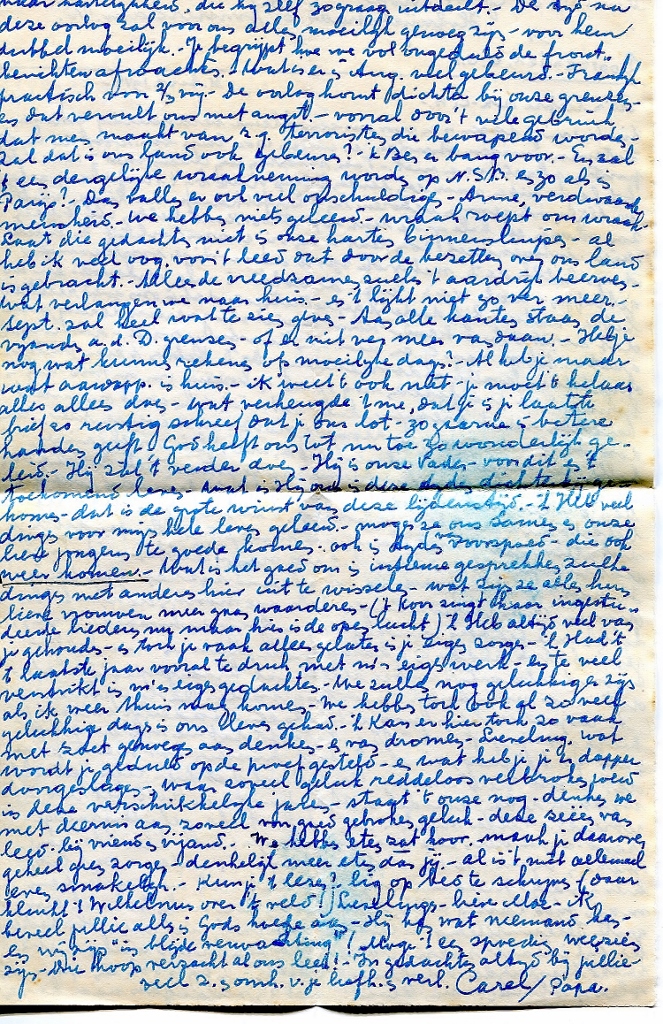 waar hartelijkheid, die hij zelf zo graag uitdeelt. - De tijd na
deze oorlog zal voor ons alles moeilijk genoeg zijn - voor hem
dubbel moeilijk. - Je begrijpt hoe we vol ongeduld de front-
berichten afwachten. - Wat is er in Aug. veel gebeurd. - Frankrijk
practisch voor 2/3 vrij. - De oorlog komt dichter bij onze grenzen -
en dat vervult ons met angst - vooral door 't vele gebruik
dat men maakt van z.g. terroristen die bewapend worden -
zal dat in ons land ook gebeuren? - 'k Ben er bang voor. - En zal
't een dergelijke wraakneming worden op N.S.B. en zo als in
Parijs? - Dan vallen er ook veel onschuldigen - Arme, verdwaasde
mensheid - we hebben niets geleerd - wraak roept om wraak -
Laat die gedachten niet in onze harten binnensluipen - al
heb ik veel oog voor 't leed dat door de bezetter over ons land
is gebracht. - Alleen de vreedzamen zullen 't aardrijk beërven -
wat verlangen we naar huis - en 't lijkt niet zo ver meer. -
Sept. zal heel wat te zien geven - Aan alle kanten staan de
vijanden a.d. D. grenzen - of er niet ver meer vandaan. - Heb je
nog wat kunnen rekenen op moeilijke dagen? - Al heb je maar
wat aardapp. in huis. - ik weet 't ook niet - je moet 't helaas
alles alleen doen - wat verheugde 't me, dat je in je laatste
brief zo rustig schreef dat je ons lot - zo gaarne in betere
handen geeft. God heeft ons tot nu toe zo wonderlijk ge-
leid. - Hij zal 't verder doen - Hij is onze Vader - voor dit en 't
toekomend leven - wat is Hij ons in deze tijden dichterbij ge-
komen - dat is de grote winst van deze lijdenstijd. - 'k Heb veel
dingen voor mijn hele leven geleerd - mogen ze ons samen en onze
lieve jongens te goede komen. ook in tijden van voorspoed - die ook
weer komen. - Wat is het goed om in intieme gesprekken zulke
dingen met anderen hier uit te wisselen - wat zijn ze allen hun
lieve vrouwen meer gaan waarderen - ('t Koor zingt thans ingestu-
deerde liederen, nu maar hier in de open lucht) 'k Heb altijd veel van
je gehouden - en toch je vaak alleen gelaten in je eigen zorgen - 'k Had 't
't laatste jaar vooral te druk met m'n eigen werk - en te veel
verstrikt in m'n eigen gedachten - We zullen nog gelukkiger zijn
als ik weer thuis mag komen - We hebben toch ook al zoveel
gelukkige dagen in ons leven gehad. - 'k Kan er hier toch zo vaak
met zoet genoegen aan denken - en van dromen - Lieveling, wat
wordt je geduld op de proef gesteld - en wat heb je je er dapper
doorgeslagen - waar zoveel geluk reddeloos verbroken werd
in deze verschrikkelijke jaren - staat 't onze nog - denken we
met deernis aan zoveel van goed gebroken geluk - deze zeeën van
leed - bij vriend en vijand. - We hebben eten zat hoor. maak je daarover
geheel geen zorgen - denkelijk meer eten dan jij - al is 't niet allemaal
even smakelijk. - Kun je 't lezen? lig op bed te schrijven (daar
klinkt 't Wilhelmus over 't veld!) Lieveling - lieve Mae - Ik
beveel jullie alle in Gods hoede aan - Hij kan wat niemand kan -
en wij zijn "in blijde verwachting"! Moge 't een spoedig weerzien
zijn - Die hoop verzacht al ons leed! - In gedachten altijd bij jullie -
veel z. en omh. v. je liefh. en verl. Carel / Papa.